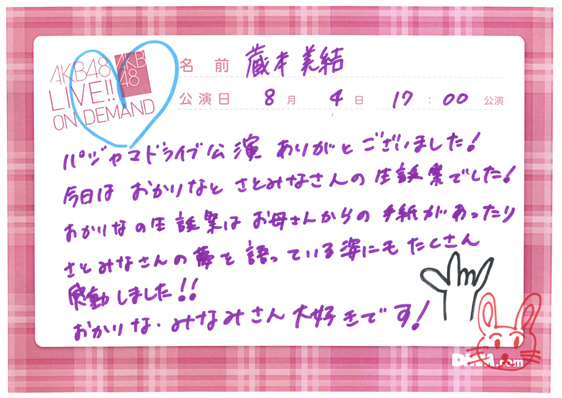 AKB48
LIVE!!
ON DEMAND
AKB
48
名 前 蔵本美結
公演日 8月 4日 17:00 公演
パジャマドライブ公演 ありがとございました!
今日は おかりなと さとみなさんの 生誕祭でした!
おかりなの生誕祭は お母さんからの 手紙があったり
さとみなさんの 夢を 語っている姿にも たくさん
感動しました!!
おかりな・みなみさん 大好きです!
.com